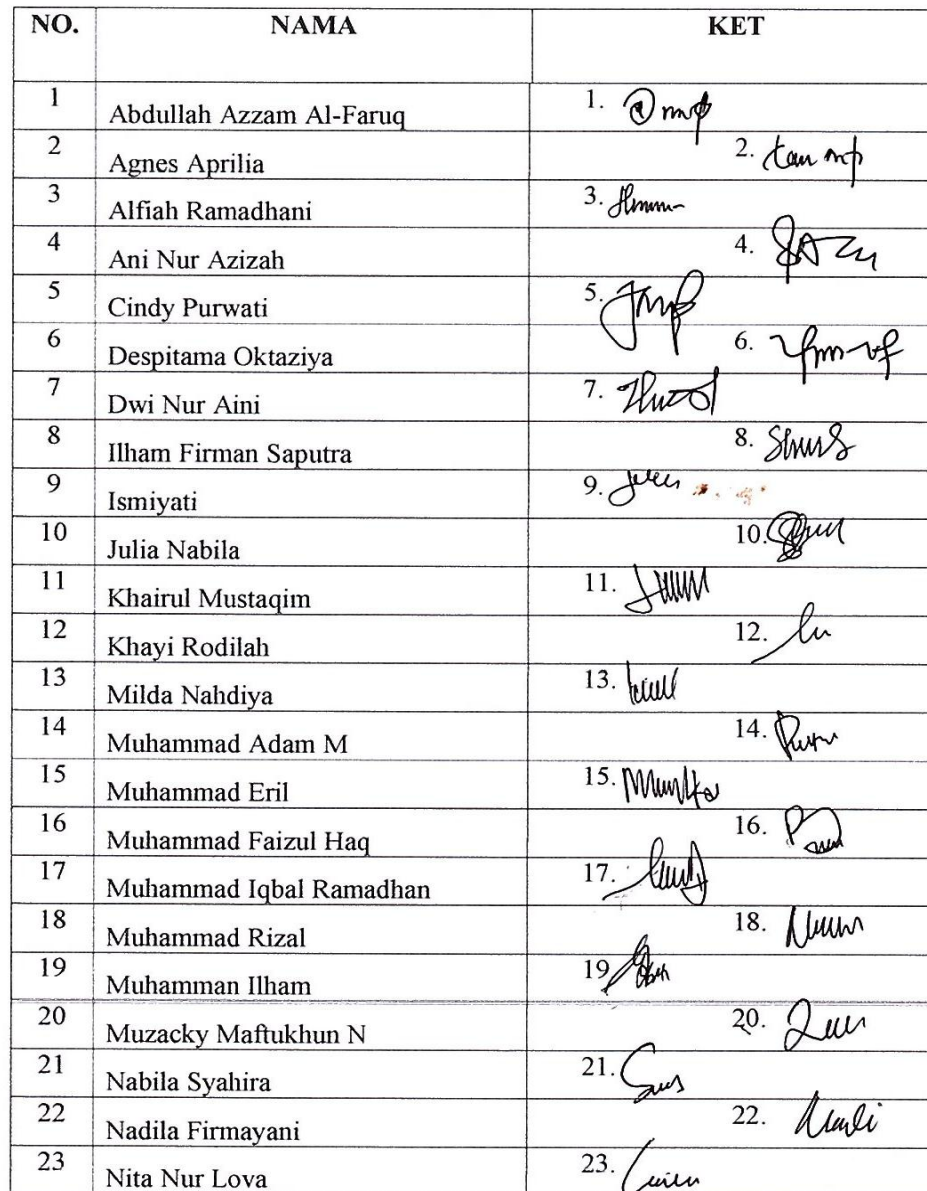 NO. NAMA KET
1 Abdullah Azzam Al-Faruq 1.
2 Agnes Aprilia 2.
3 Alfiah Ramadhani 3.
4 Ani Nur Azizah 4.
5 Cindy Purwati 5.
6 Despitama Oktaziya 6.
7 Dwi Nur Aini 7.
8 Ilham Firman Saputra 8.
9 Ismiyati 9.
10 Julia Nabila 10.
11 Khairul Mustaqim 11.
12 Khayi Rodilah 12.
13 Milda Nahdiya 13.
14 Muhammad Adam M 14.
15 Muhammad Eril 15.
16 Muhammad Faizul Haq 16.
17 Muhammad Iqbal Ramadhan 17.
18 Muhammad Rizal 18.
19 Muhamman Ilham 19
20 Muzacky Maftukhun N 20.
21 Nabila Syahira 21.
22 Nadila Firmayani 22.
23 Nita Nur Lova 23.